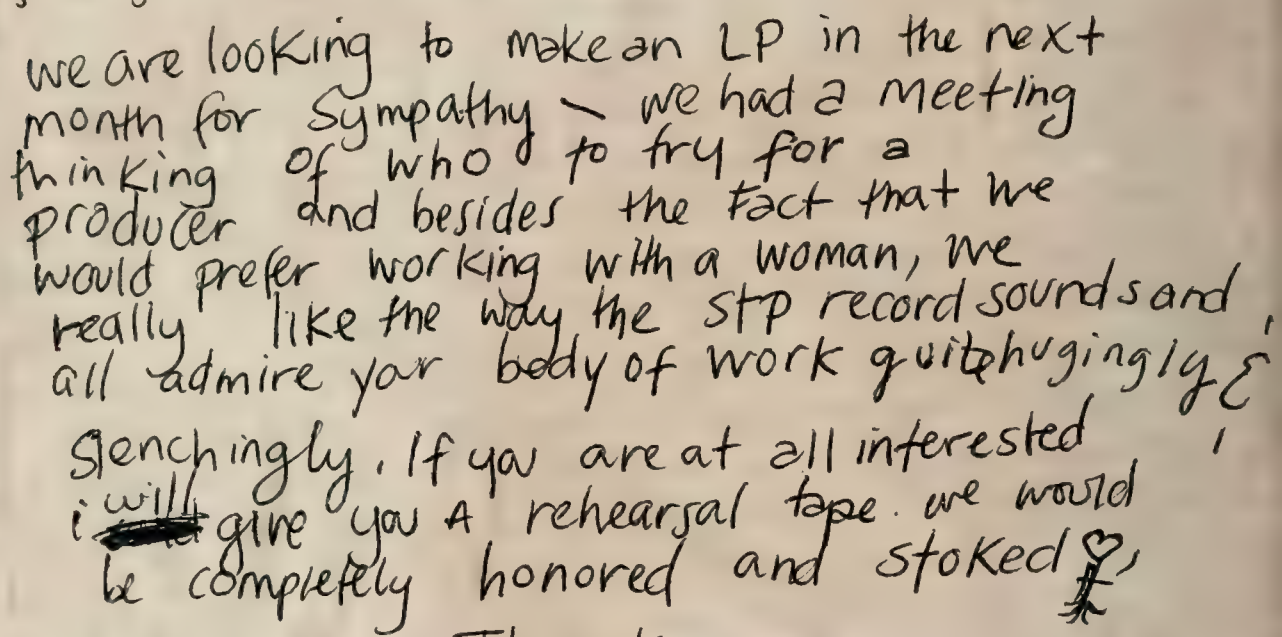 we are looking to make an LP in the next
month for Sympathy - we had a meeting
thinking of who to try for a
producer and besides the fact that we
would prefer working with a woman, we
really like the way the STP record sounds and
all admire your body of work quite hugingly &
glenchingly. If you are at all interested
i will give you A rehearsal tape. we would
be completely honored and stoked